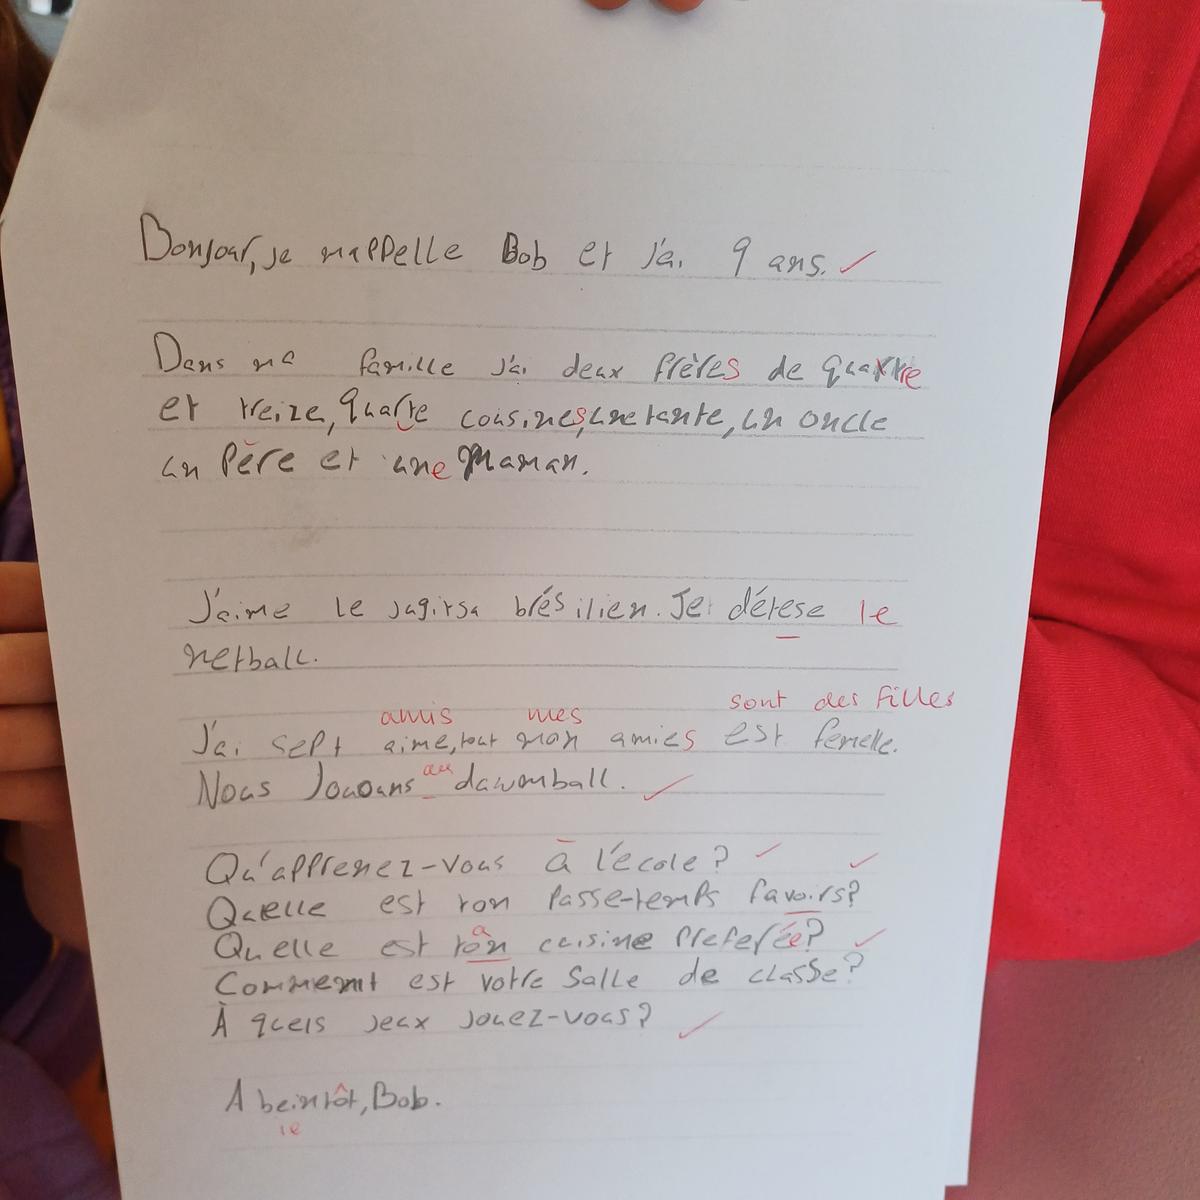 Bonjour, je mappelle Bob et j'ai 9 ans.
Dans ma famille j'ai deux frères de quattre
et treize, quatre cousines, une tante, un oncle
un Père et une Maman.
J'aime le jugitsa brésilien. Je détese le
netball.
amis mes sont des filles
J'ai sept aime, tout mon amies est femelle.
Nous Jouoans au dawmball.
Qu'apprenez-vous à l'école?
Quelle est ton Passe-temps favoirs?
Quelle est ton a cuisine Preferée?
Commemt est votre Salle de classe?
À quels jeux jouez-vous?
A beintôt, Bob.
ie